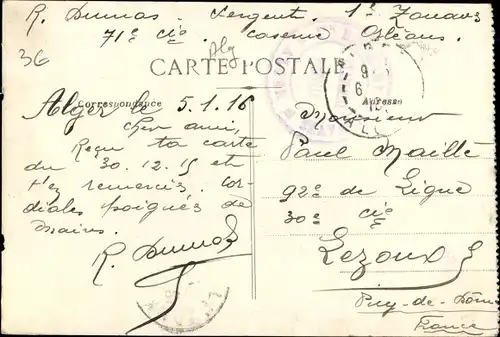 R. Dumas Sergent. 1er Zouaves
71e Cie. caserne Orléans.
36
Alg
CARTE POSTALE
Correspondance
Adresse
Alger le 5.1.16
Cher ami,
Reçu ta carte
du 30.12.15 et
t'ez remercié. Cor-
diales poignés de
mains.
R. Dumas
Monsieur
Paul Maille
92e de Ligne
30e Cie
Lezoux
Puy-de-Dôme
France